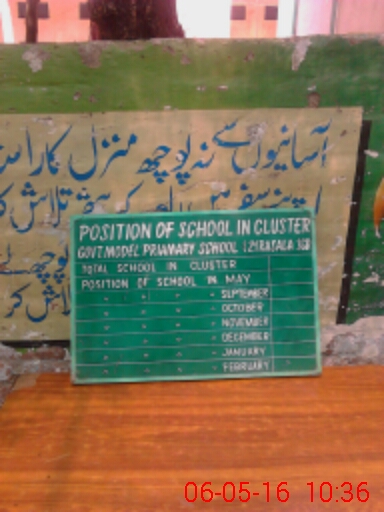 آسانیوں سے نہ پوچھ منزل کا راستہ
اپنے سفر میں راہ کے تلاش کر
POSITION OF SCHOOL IN CLUSTER
GOVT.MODEL PRIAMARY SCHOOL
TOTAL SCHOOL IN CLUSTER
POSITION OF SCHOOL IN MAY
" " " " SEPTEMBER
" " " " OCTOBER
" " " " NOVEMBER
" " " " DECEMBER
" " " " JANUARY
" " " " FEBRUARY
06-05-16 10:36